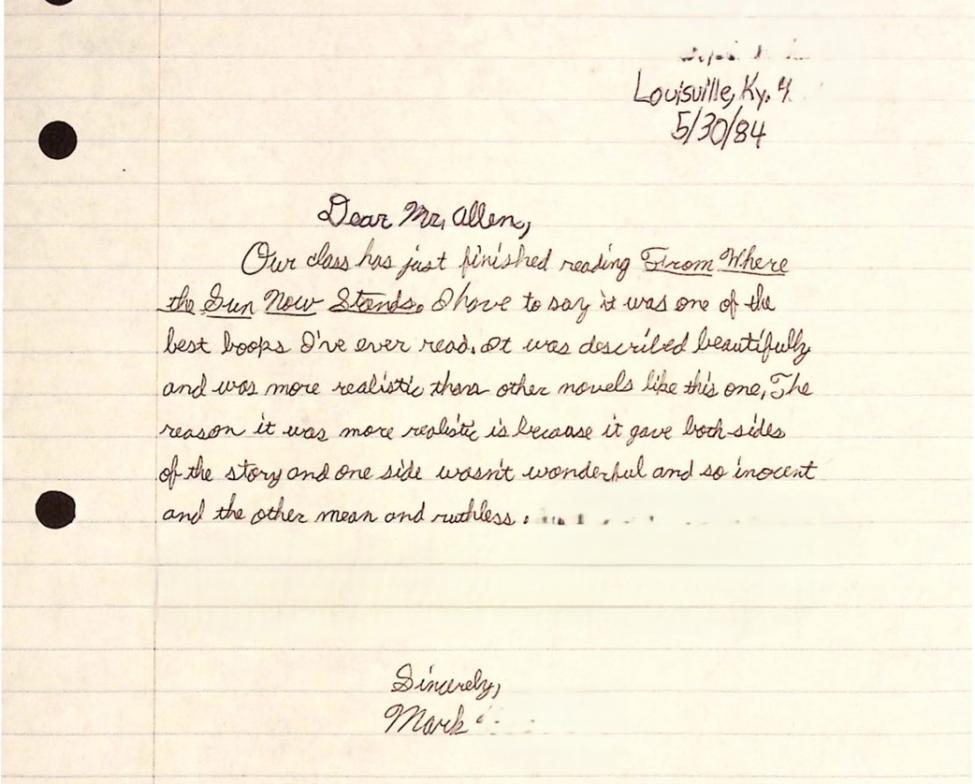 Louisville, Ky. 4
5/30/84
Dear Mr. Allen,
Our class has just finished reading From Where
the Sun Now Stands. I have to say it was one of the
best boops I've ever read. It was described beautifully
and was more realistic than other novels like this one. The
reason it was more realistic is because it gave both sides
of the story and one side wasn't wonderful and so inocent
and the other mean and ruthless.
Sincerely,
Mark